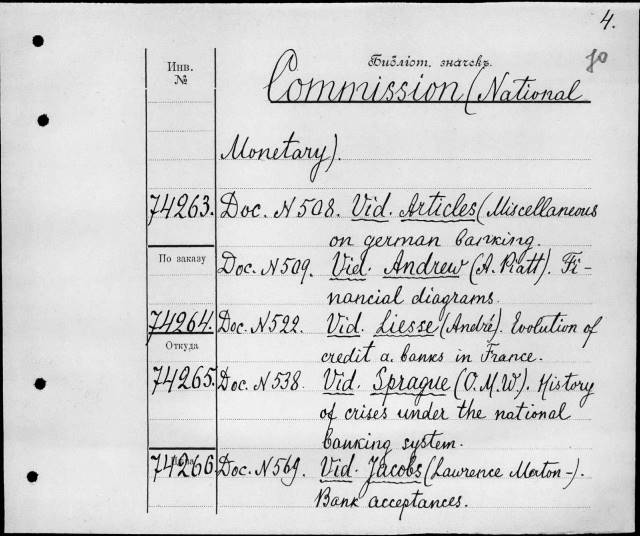 4.
Библіот. значекъ.
Инв.
№
Commission (National
Monetary).
74263. Doc. N 508. Vid. Articles (Miscellaneous
on german banking.
По заказу
Doc. N 509. Vid. Andrew (A. Piatt). Fi-
nancial diagrams.
74264. Doc. N 522. Vid. Liesse (André). Evolution of
credit a. banks in France.
Откуда
74265. Doc. N 538. Vid. Sprague (O.M.W.). History
of crises under the national
banking system.
74266. Doc. N 569. Vid. Jacobs (Lawrence Merton-).
Bank acceptances.